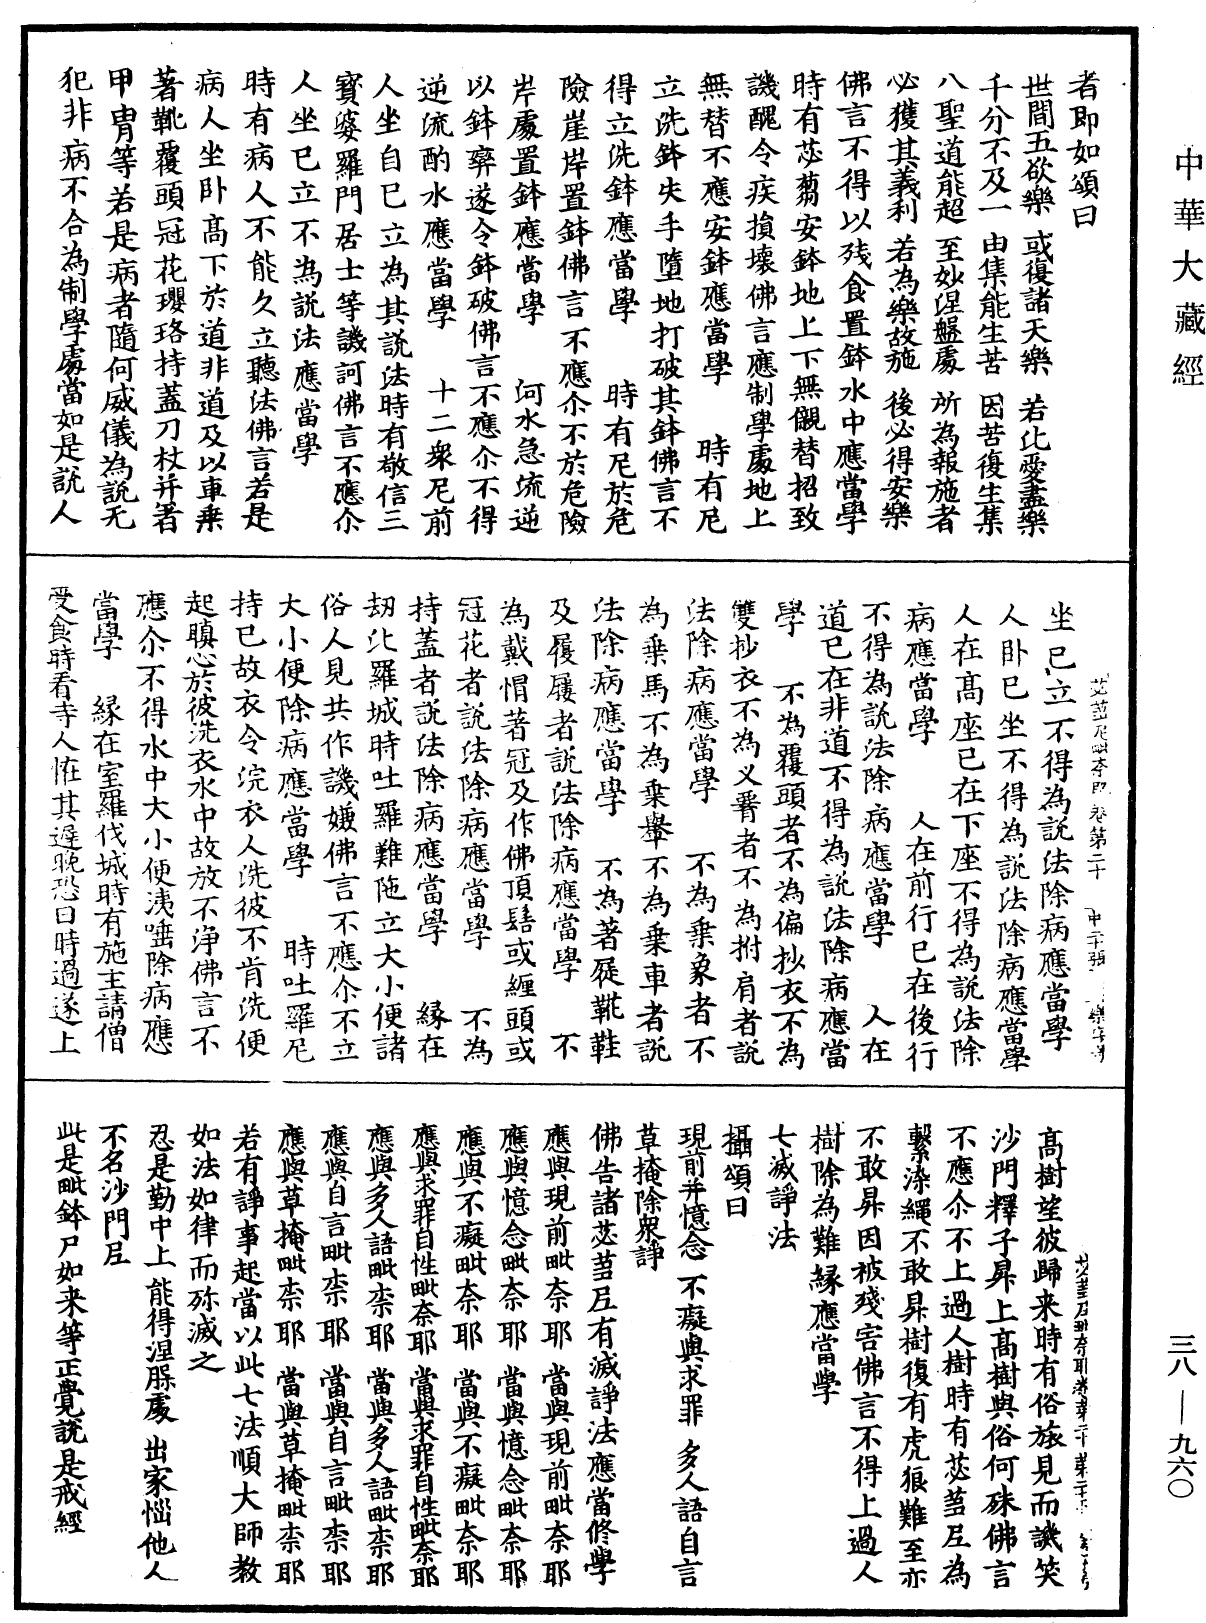 中華大藏經
三八—九六〇
者即如頌曰
世間五欲樂　或復諸天樂　若比愛盡樂
千分不及一　由集能生苦　因苦復生集
八聖道能超　至妙涅盤處　所為報施者
必獲其義利　若為樂故施　後必得安樂
佛言不得以殘食置鉢水中應當學
時有苾蒭安鉢地上下無儭替招致
譏醜令疾損壞佛言應制學處地上
無替不應安鉢應當學　時有尼
立洗鉢失手墮地打破其鉢佛言不
得立洗鉢應當學　時有尼於危
險崖岸置鉢佛言不應尒不於危險
岸處置鉢應當學　河水急流逆
以鉢㪺遂令鉢破佛言不應尒不得
逆流酌水應當學　十二衆尼前
人坐自已立為其說法時有敬信三
寶婆羅門居士等譏訶佛言不應尒
人坐已立不為說法應當學
時有病人不能久立聽法佛言若是
病人坐卧高下於道非道及以車乗
著靴覆頭冠花瓔珞持蓋刀杖并著
甲冑等若是病者隨何威儀為說无
犯非病不合為制學處當如是說人
坐已立不得為說法除病應當學
人卧已坐不得為說法除病應當學
人在高座已在下座不得為說法除
病應當學　人在前行已在後行
不得為說法除病應當學　人在
道已在非道不得為說法除病應當
學　不為覆頭者不為偏抄衣不為
雙抄衣不為叉𦝫者不為拊肩者說
法除病應當學　不為乗象者不
為乗馬不為乗轝不為乗車者說
法除病應當學　不為著屐靴鞋
及履屨者說法除病應當學　不
為戴帽著冠及作佛頂髻或纏頭或
冠花者說法除病應當學　不為
持蓋者說法除病應當學　緣在
劫比羅城時吐羅難陁立大小便諸
俗人見共作譏嫌佛言不應尒不立
大小便除病應當學　時吐羅尼
持已故衣令浣衣人洗彼不肯洗便
起瞋心於彼洗衣水中故放不淨佛言不
應尒不得水中大小便洟唾除病應
當學　緣在室羅伐城時有施主請僧
受食時看寺人恠其遲晚恐日時過遂上
高樹望彼歸来時有俗旅見而譏笑
沙門釋子昇上高樹與俗何殊佛言
不應尒不上過人樹時有苾蒭尼為
繫染繩不敢昇樹復有虎狼難至亦
不敢昇因被殘害佛言不得上過人
樹除為難緣應當學
七滅諍法
攝頌曰
現前并憶念　不癡與求罪　多人語自言
草掩除衆諍
佛告諸苾蒭尼有滅諍法應當修學
應與現前毗奈耶　當與現前毗奈耶
應與憶念毗奈耶　當與憶念毗奈耶
應與不癡毗奈耶　當與不癡毗奈耶
應與求罪自性毗奈耶　當與求罪自性毗奈耶
應與多人語毗柰耶　當與多人語毗柰耶
應與自言毗柰耶　當與自言毗柰耶
應與草掩毗柰耶　當與草掩毗柰耶
若有諍事起當以此七法順大師教
如法如律而殄滅之
忍是勤中上　能得涅槃處　出家惱他人
不名沙門尼
此是毗鉢尸如来等正覺說是戒經